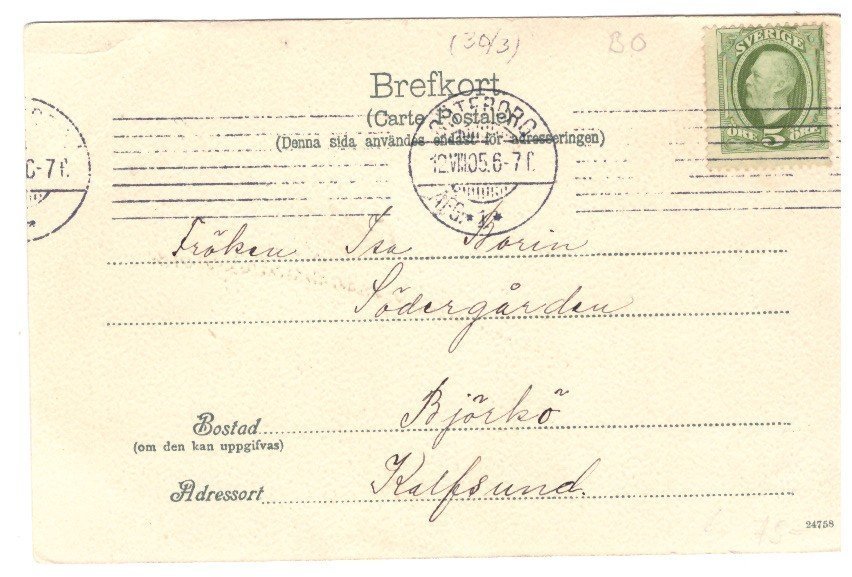 (30/3) BO
SVERIGE
5
Brefkort
(Carte Postale)
(Denna sida användes endast för adresseringen)
GÖTEBORG
12.VIII.05.6-7 f.
AFG. * 1 *
6-7 f.
Fröken Isa Borin
Södergården
Bostad Björkö
(om den kan uppgifvas)
Adressort Kalfsund.
24758
15-